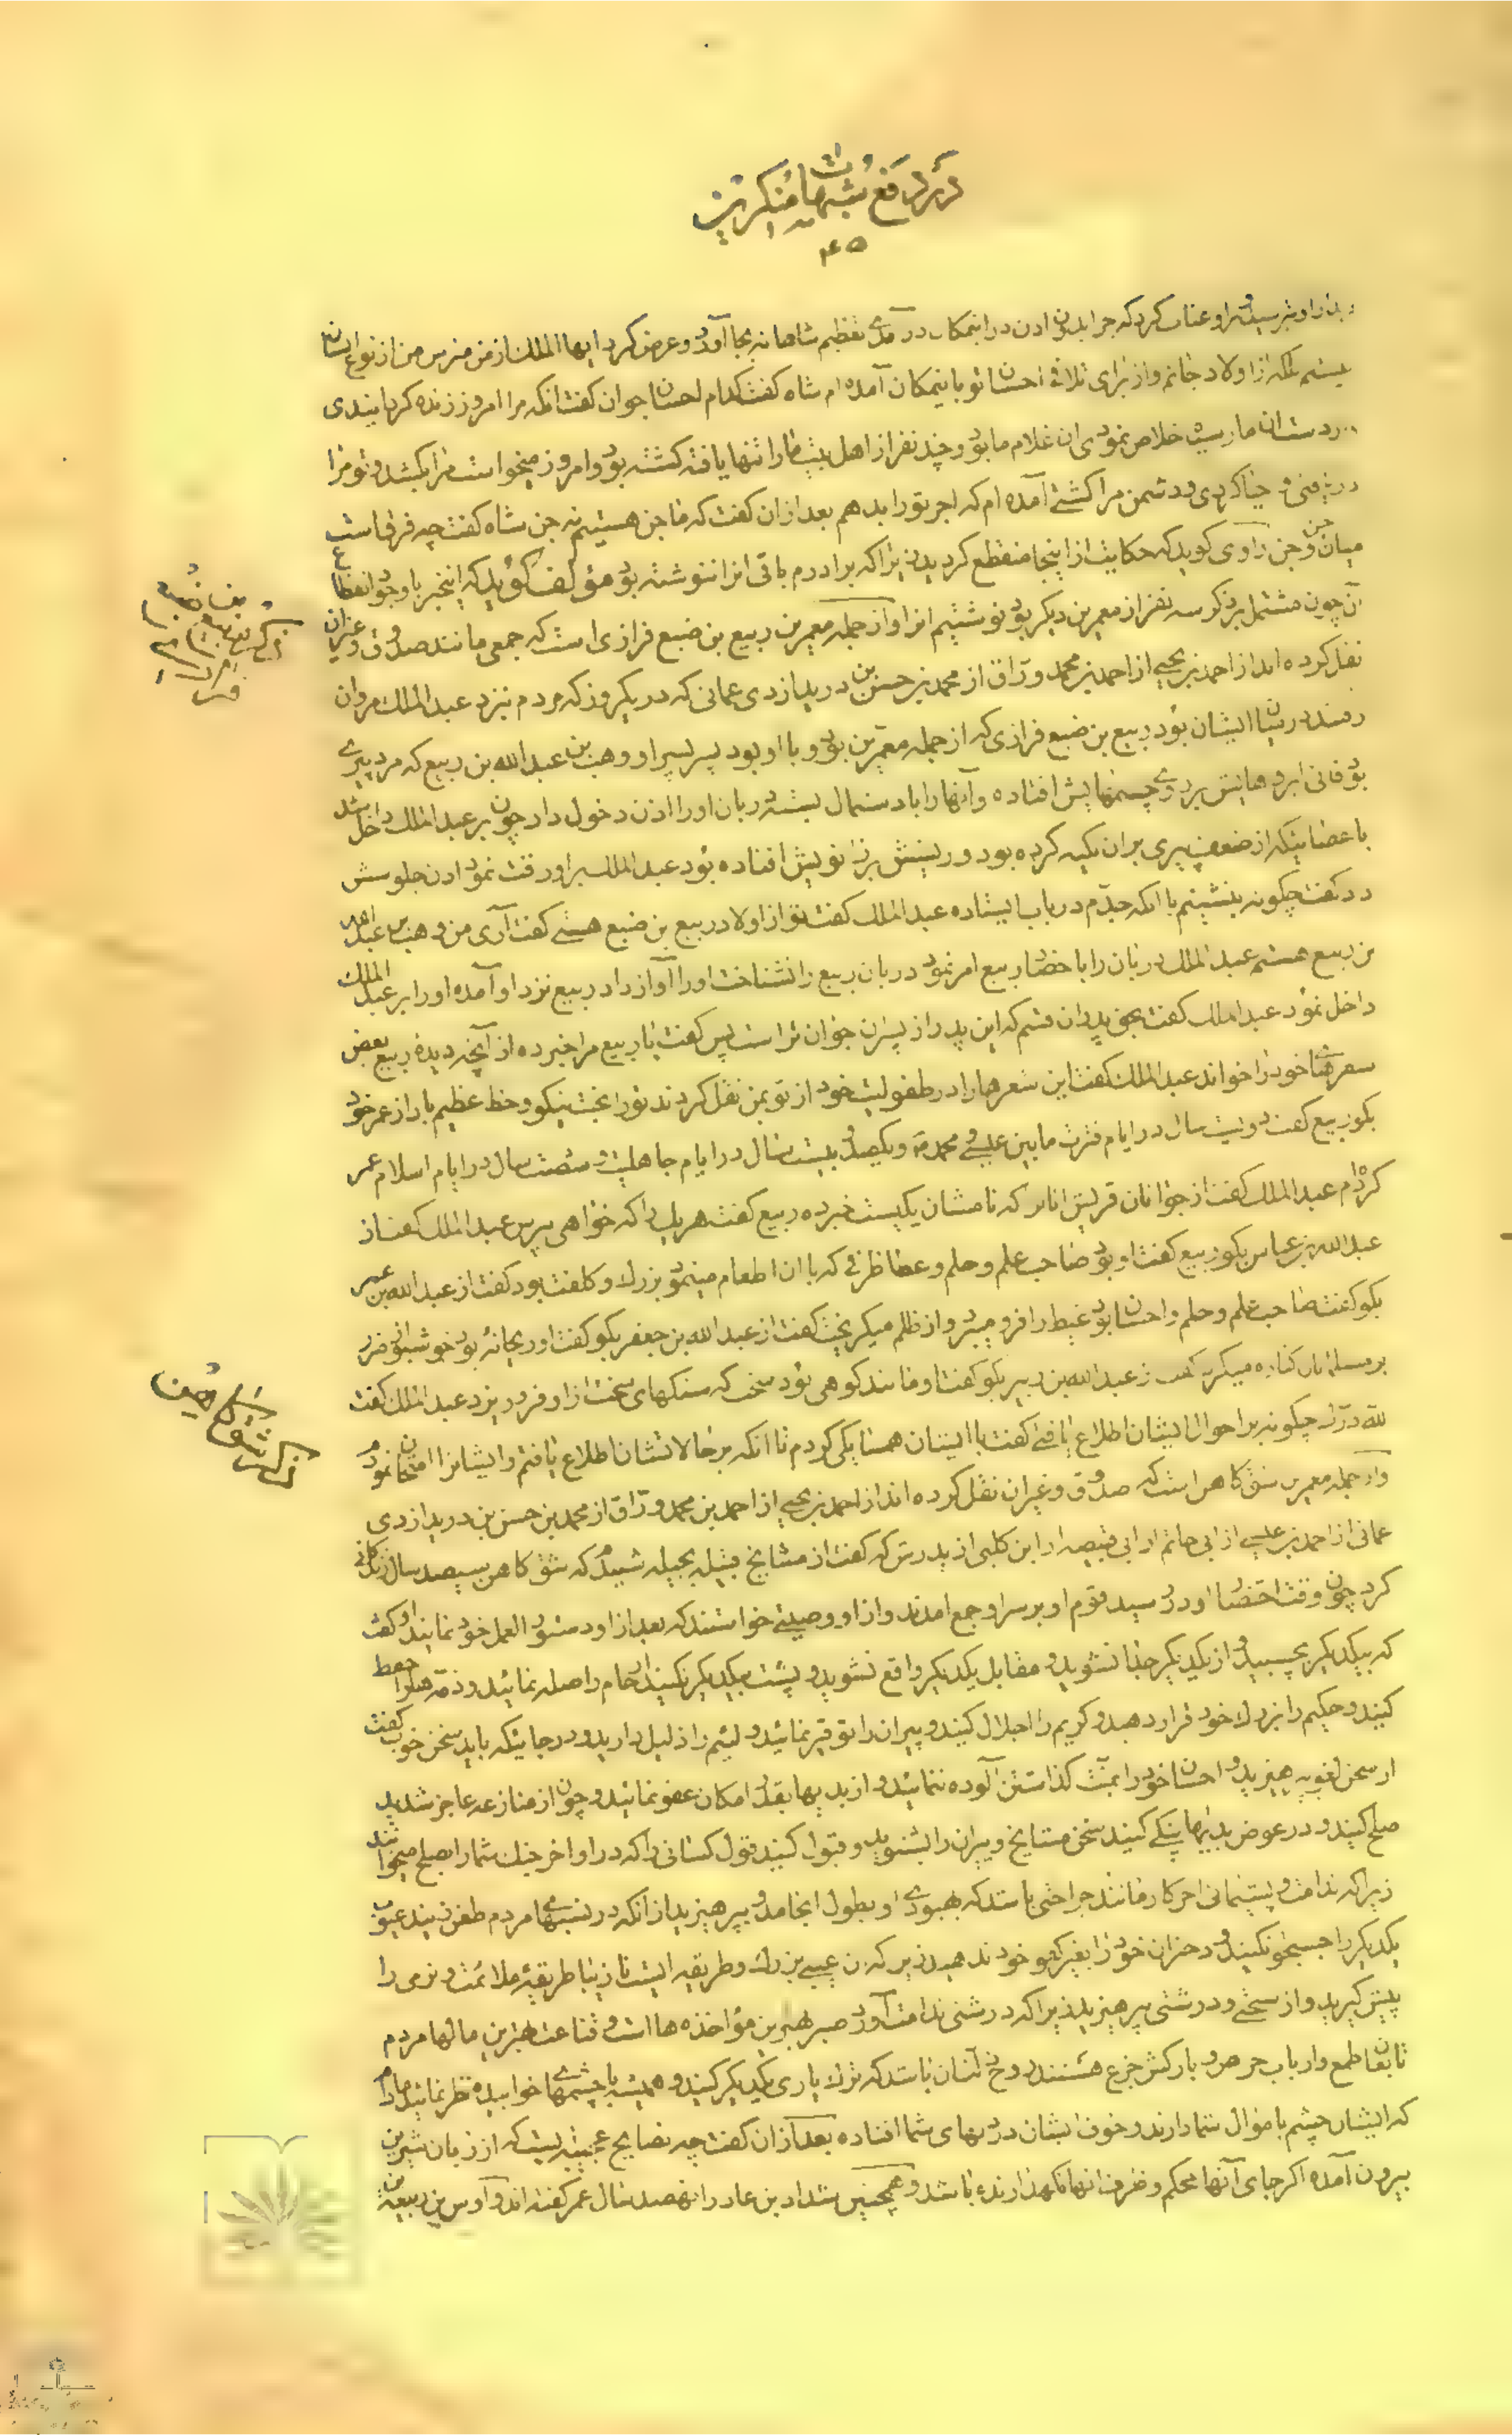 در دفع شبهات منکرین
۴۵
از او بترسید و بر او عتاب کرد که چرا بدون اذن در اینمکان در آمدے تعظیم شاهانه بجا آورد و عرض کرد ایها الملک از من مترس من از نوع انسان
نیستم بلکه از اولاد جانم و از برای تلافی احسان تو باینمکان آمده ام شاه گفت کدام احسان جوان گفت آنکه مرا امروز زنده گردانیدی
از دست آن مار سیاه خلاص نمودی آن غلام ما بود و چند نفر از اهل بیت ما را تنها یافته کشته بود و امروز میخواست مرا بکشد و تو مرا
دریافتی و حیات دادی و دشمن مرا کشتے آمده ام که اجر تو را بدهم بعد از ان گفت که ما جن هستیم نه جن شاه گفت چه فرق است
میان جن و جن راوی گوید که حکایت از اینجا منقطع گردید زیرا که برادرم باقی انرا ننوشته بود مؤلف گوید که اینخبر با وجود انقطاع
آن چون مشتمل بر ذکر سه نفر از معمرین دیگر بود نوشتیم انرا و از جمله معمرین ربیع بن ضبع فزاری است که جمعی مانند صدوق و غیر ان
نقل کرده اند از احمد بن یحیے از احمد بن محمد وراق از محمد بن حسن بن درید ازدی عمانی که در یکروز که مردم نزد عبد الملک مروان
رفتند در میان ایشان بود ربیع بن ضبع فزاری که از جمله معمرین بود و با او بود پسر پسر او وهب بن عبد الله بن ربیع که مرد پیرے
بود فانی ابروهایش بر روے چشمهایش افتاده و آنها را با دستمال بسته دربان او را اذن دخول داد چون بر عبد الملک داخل شد
با عصائیکه از ضعف پیری بر ان تکیه کرده بود و ریشش بر زانویش افتاده بود عبد الملک بر او رقت نمود اذن جلوسش
داد گفت چگونه بنشینم با انکه جدم در باب ایستاده عبد الملک گفت تو از اولاد ربیع بن ضبع هستے گفت آری من وهب بن عبد الله
بن ربیع هستم عبد الملک دربان را باحضار ربیع امر نمود دربان ربیع را نشناخت او را آواز داد ربیع نزد او آمده او را بر عبد الملک
داخل نمود عبد الملک گفت بحق پدران قسم که این پدر از پسرن جوان تر است پس گفت یا ربیع مرا خبر ده از آنچه دیدهٔ ربیع بعض
شعرهای خود را خواند عبد الملک گفت این شعرها را در طفولیت خود از تو بمن نقل کردند تو را بخت نیکو و حظ عظیم باد از عمر خود
بگو ربیع گفت دویست سال در ایام فترت مابین عیسے و محمد و یکصد و بیست سال در ایام جاهلیت و شصت سال در ایام اسلام عمر
کرده ام عبد الملک گفت از جوانان قریش انانرا که نامشان یکیست خبر ده ربیع گفت هر یک را که خواهی بپرس عبد الملک گفت از
عبد الله بن عباس بگو ربیع گفت او بود صاحب علم و حلم و عطا ظرفی که با ان اطعام مینمود بزرگ و کلفت بود گفت از عبد الله بن عمر
بگو گفت صاحب علم و حلم و احسان بود غیظ را فرو میبرد و از ظلم میگریخت گفت از عبد الله بن جعفر بگو گفت او ریحانهٔ بود خوشبو از ضرر
بر مسلمانان کناره میکرد گفت از عبد الله بن زبیر بگو گفت او مانند کوهی بود سخت که سنگهای سخت از او فرو ریزد عبد الملک گفت
لله درک چگونه بر احوال ایشان اطلاع یافتے گفت با ایشان همسایگی کردم تا انکه بر حالاتشان اطلاع یافتم و ایشانرا امتحان نمودم
و از جمله معمرین شق کاهن است که صدوق و غیر ان نقل کرده اند از احمد بن یحیے از احمد بن محمد وراق از محمد بن حسن بن درید ازدی
عمانی از احمد بن عیسے از ابی حاتم از ابی قبیصه از ابن کلبی از پدرش که گفت از مشایخ قبیله بجیله شنیدم که شق کاهن سیصد سال زندگانی
کرد چون وقت احتضار او در رسید قوم او بر سر او جمع امدند و از او وصیتے خواستند که بعد از او دستور العمل خود نمایند او گفت
که بیکدیگر بچسبید و از یکدیگر جدا نشوید و مقابل یکدیگر واقع نشوید و پشت بیکدیگر نکنید ارحام را صله نمائید و ذمه ها را حفظ
کنید و حکیم را بزرگ خود قرار دهید و کریم را اجلال کنید و پیران را توقیر نمائید و لئیم را ذلیل دارید و در جائیکه باید سخن خوب گفت
از سخن لغو بپرهیزید و احسان خود را بمنت گذاشتن آلوده ننمائید و از بدیها بقدر امکان عفو نمائید و چون از منازعه عاجز شدید
صلح کنید و در عوض بدیها نیکے کنید سخن مشایخ و پیران را بشنوید و قبول کنید قول کسانی را که در اواخر جنگ شما را بصلح میخوانند
زیرا که ندامت و پشیمانی اخر کار مانند جراحتی باشد که بهبودے او بطول انجامد و بپرهیزید از انکه در نسبهاے مردم طعن زنید عیوب
یکدیگر را جستجو نکنید و دختران خود را بغیر کفو خود ندهید زیرا که ان عیبے بزرگ و طریقه ایست نازیبا طریقهٔ ملائمت و نرمی را
پیش گیرید و از سختے و درشتی بپرهیزید زیرا که درشتی ندامت آورد صبر بهترین مؤاخذه ها است و قناعت بهترین مالها مردم
تابعان طمع و ارباب حرص و بارکش جزع هستند روح ذلت ان باشد که ترک یاری یکدیگر کنید و همیشه با چشمهاے خوابیده نظر نمائید مادام
که ایشان چشم باموال شما دارند و خوف ایشان در دلهای شما افتاده بعد از ان گفت چه نصایح عجیبه ایست که از زبان شیرین
بیرون آمده اگر جای آنها محکم و ظرف انها نگهدارنده باشد و همچنین شداد بن عاد را نهصد سال عمر گفته اند و آوس بن ربیعة بن
ذکر ربیع بن ضبع فزاری
ذکر شق کاهن